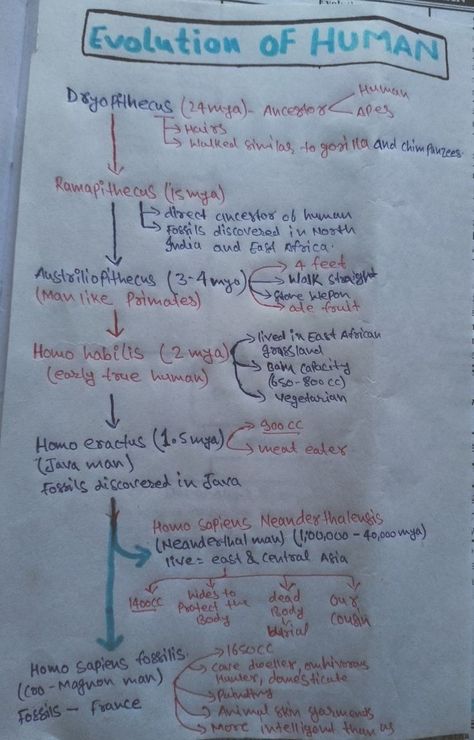 Evolution OF HUMAN
Dryopithecus (24mya) - Ancestor
Human
APES
Hairs
Walked similar to gorilla and chimpanzees.
Ramapithecus (15mya)
direct ancestor of human
Fossils discovered in North
India and East Africa.
Austriliopithecus (3-4mya)
(Man like Primates)
4 feet
Walk straight
Stone Wepon
ate fruit
Homo habilis (2 mya)
(early true human)
lived in East African
grassland
capacity
(650-800cc)
vegetarian
Homo eractus (1.5mya)
(Java man)
Fossils discovered in Java
900cc
meat eater
Homo sapiens Neanderthalensis
(Neanderthal man) (1,00,000 - 40,000mya)
live = east & central Asia
1400cc
Hides to
Protect the
Body
dead
Body
burial
our
cousin
Homo sapiens fossilis.
(Cro-Magnon man)
Fossils - France
1650cc
cave dweller, omnivorous
Hunter, domesticate
Animal skin garments
More intelligent than us